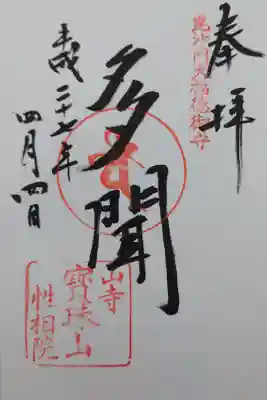 奉拝
毘沙門天福徳祐守
多聞
平成二十七年
四月四日
山寺
寶珠山
性相院